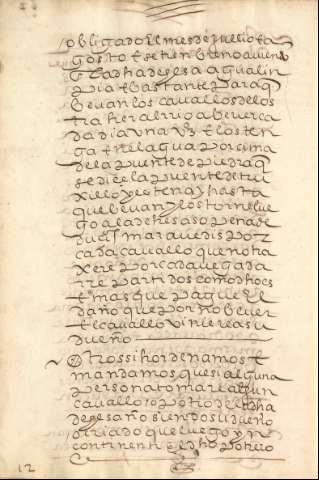 obligado el mes de jullio e a
gosto e setienbre no aviendo
en la dha desesa agua lin
pia e bastante para q
bevan los cavallos de los
traher al rio a bever ca
da dia una vez e los ten
ga en el agua por cima
de la puente de piedra q
se dice la puente de tru
xillo y esten ay hasta
que bevan y los torne lue
go a la dehesa so pena de
duci[en]tos maravedis por
cada cavallo que no tra
xere por cada vegada
rre partidos como dho es
e mas que pague el
daño que por no bever
el cavallo viniere a su
dueño
Otrossi hordenamos e
mandamos que si alguna
persona tomare algun
cavallo o potro de la dha
desesa no siendo su dueño
o criado que luego yn
continenti el dho potrero
12